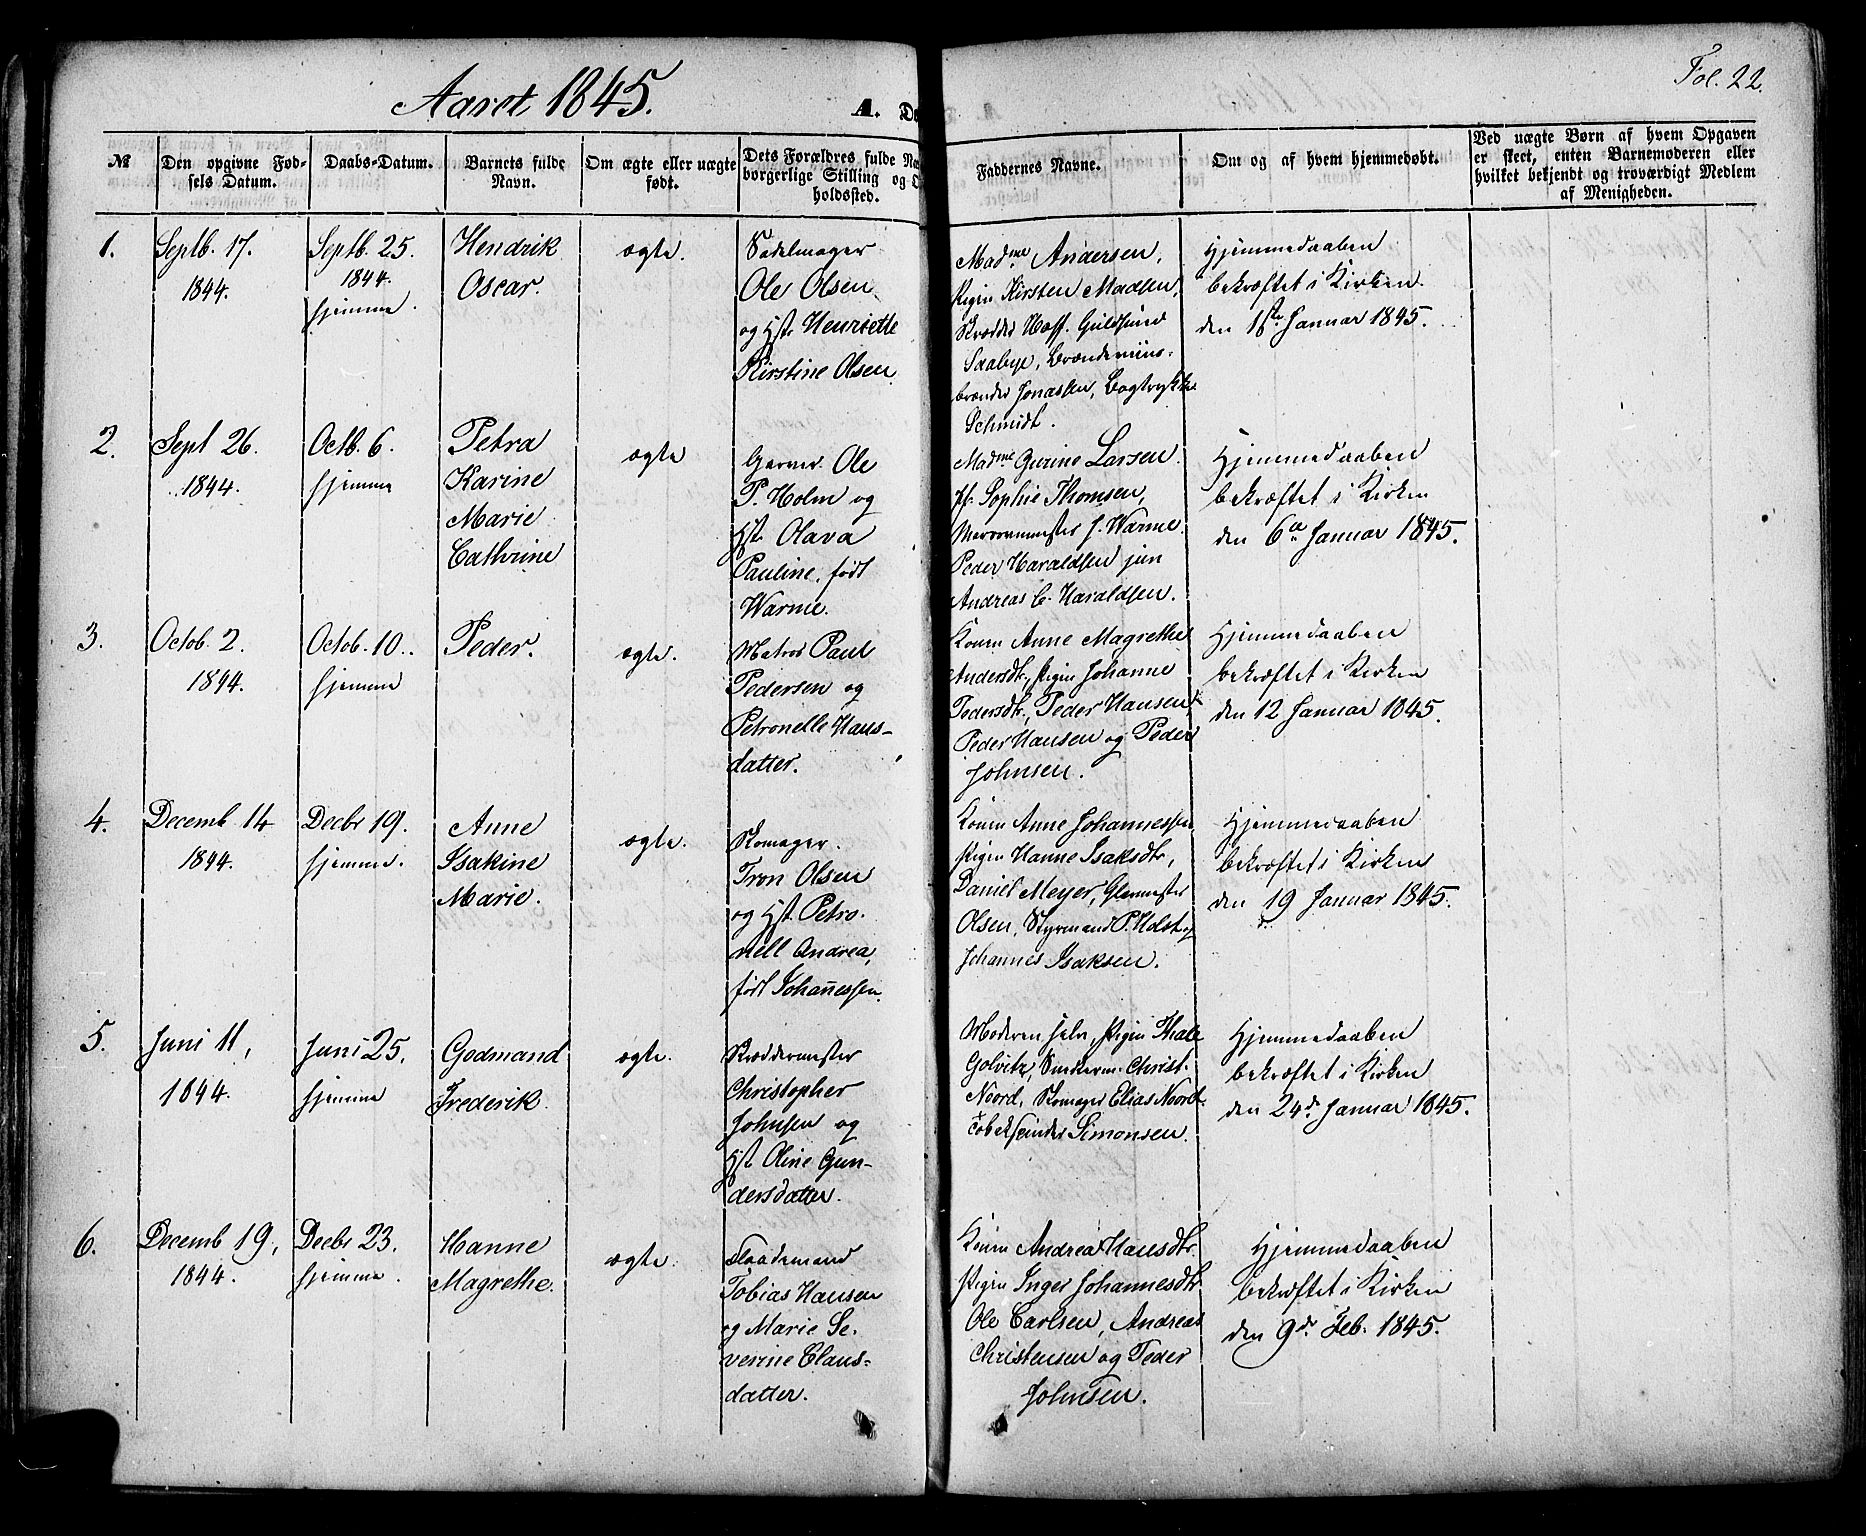 Aaret 1845.
A. De
Fol. 22.
№
Den opgivne Fød-
sels Datum.
Daabs-Datum.
Barnets fulde
Navn.
Om ægte eller uægte
født.
Dets Forældres fulde Na
borgerlige Stilling og O
holdssted.
Faddernes Navne.
Om og af hvem hjemmedøbt.
Ved uægte Børn af hvem Opgaven
er skeet, enten Barnemoderen eller
hvilket bekjendt og troværdigt Medlem
af Menigheden.
1.
Septb. 17.
1844.
Septb. 25.
1844.
hjemme.
Hendrik
Oscar.
ægte.
Sadelmager
Ole Olsen
og Hst. Henriette
Kirstine Olsen
Madme Andersen,
Pigen Kirsten Madsen,
Skrædder Hoff. Guldsmed
Saabye, Brændeviins-
brænder Jonassen, Bogtrykke
Schmidt.
Hjemmedaaben
bekræftet i Kirken
den 1ste Januar 1845.
2.
Sept 26.
1844.
Octb. 6.
hjemme
Petra
Karine
Marie
Cathrine
ægte
Garver Ole
P. Holm og
Hst. Olava
Pauline, født
Warme.
Madme Gurine Larsen
Jf. Sophie Thomsen,
J. Warme
Peder Haraldsen jun
Andreas C. Haraldsen.
Hjemmedaaben
bekræftet i Kirken
den 6te Januar 1845.
3.
Octob. 2.
1844.
Octob. 10.
hjemme
Peder.
ægte.
Matros Paul
Pedersen og
Petronelle Hans-
datter.
Konen Anne Magrethe
Andersdtr, Pigen Johanne
Pedersdtr, Peder Hansen,
Peder Hansen og Peder
Johnsen.
Hjemmedaaben
bekræftet i Kirken
den 12 Januar 1845.
4.
Decemb. 14
1844.
Decbr 19.
hjemme.
Anne
Isakine
Marie.
ægte.
Skomager.
Tron Olsen
og Hst. Petro-
nell Andrea,
født Johanessen.
Konen Anne Johannessen
Pigen Hanne Isaksdtr,
Daniel Meyer, Glarmester
Olsen, Styrmand P. Holst og
Johannes Isaksen.
Hjemmedaaben
bekræftet i Kirken
den 19 Januar 1845.
5.
Juni 11,
1844.
Juni 25,
hjemme
Godmand
Frederik.
ægte.
Skræddermester
Christopher
Johnsen og
Hst. Oline Gun-
dersdatter.
Moderen selv, Pigen Thale
Golvitz, Snedkerm. Christ.
Noord, Skomager Elias Noord-
Tobakspinder Simonsen.
Hjemmedaaben
bekræftet i Kirken
den 24de Januar 1845.
6.
Decemb 19,
1844.
Decbr 23.
hjemme.
Hanne
Magrethe.
ægte.
Flaademand
Tobias Hansen
og Marie Se-
verine Claus-
datter.
Konen Andrea Hansdtr.
Pigen Inger Johannesdtr
Ole Carlsen, Andreas
Christensen og Peder
Johnsen.
Hjemmedaaben
bekræftet i Kirken
den 9de Feb. 1845.